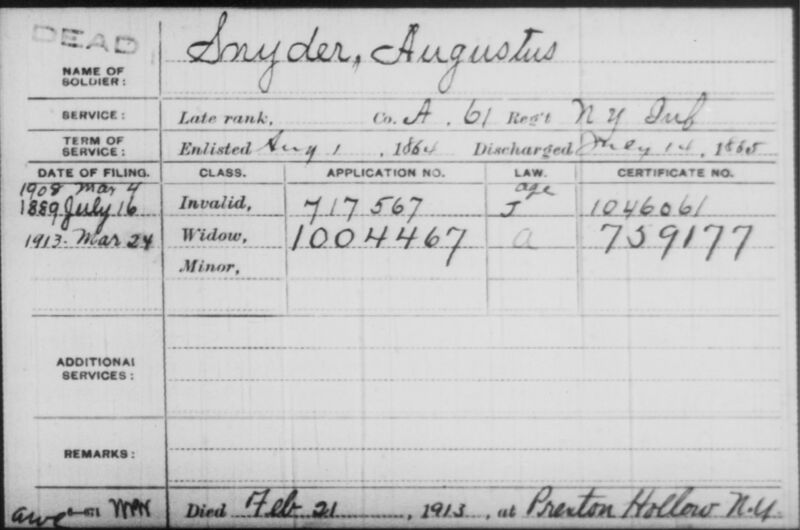 DEAD
NAME OF SOLDIER: Snyder, Augustus
SERVICE: Late rank, Co. A. 61 Reg't N Y Inf
TERM OF SERVICE: Enlisted Aug 1, 1864 Discharged July 14, 1865
DATE OF FILING. CLASS. APPLICATION NO. LAW. CERTIFICATE NO.
1908 Mar 4 age
1889 July 16 Invalid, 717567 J 1046061
1913. Mar 24 Widow, 1004467 a 759177
Minor,
ADDITIONAL SERVICES:
REMARKS:
Died Feb 21, 1913, at Preston Hollow N.Y.